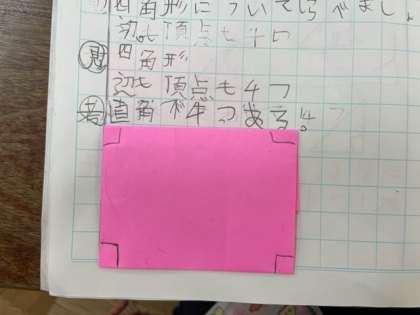 四角形についてしらべましょ
辺も頂点も4つ
思 四角形
辺も頂点も4つ
考 直角が4つある。